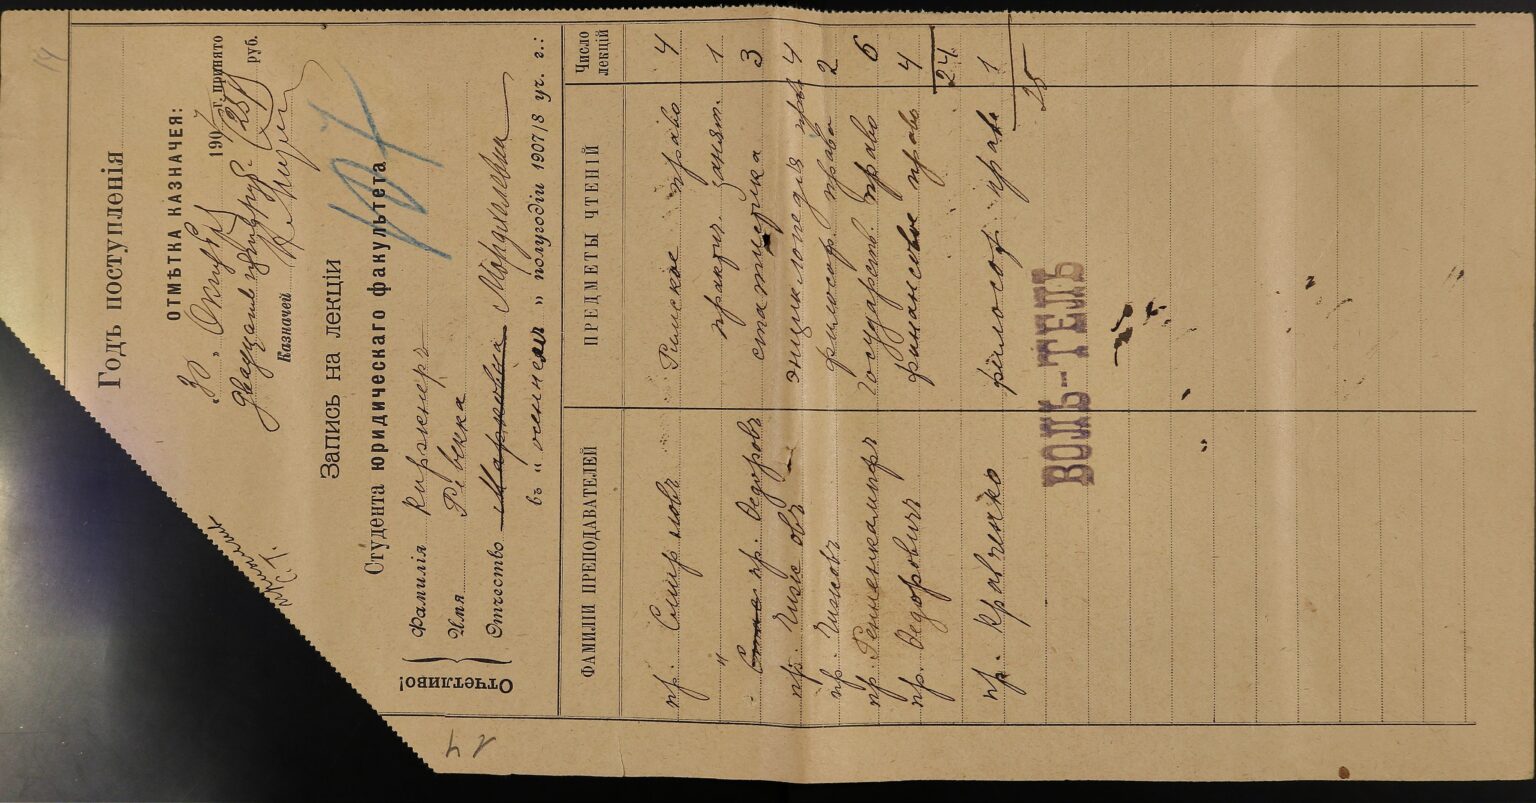 14
Годъ поступленія
ОТМѢТКА КАЗНАЧЕЯ:
„30" Октября 1907 г. принято
двадцать четыре руб. (25 р) руб.
Казначей
Запись на лекціи
Студента юридическаго факультета
Отчетливо!
Фамилія Киржнеръ
Имя Ревекка
Отчество Марковна Мордухаевна
въ „осеннемъ" полугодіи 1907/8 уч. г.:
ФАМИЛІИ ПРЕПОДАВАТЕЛЕЙ ПРЕДМЕТЫ ЧТЕНІЙ Число лекцій
пр. Смирновъ Римское право 4
" практич. занят. 1
пр. Ѳедоровъ статистика 3
пр. Чижовъ энциклопедія права 4
пр. Чижовъ философ. права 2
пр. Ренненкампфъ Государств. право 6
пр. Ѳедоровичъ финансовое право 4
24
пр. Кравченко философ. права 1
25
ВОЛЬ-ТЕЛЬ